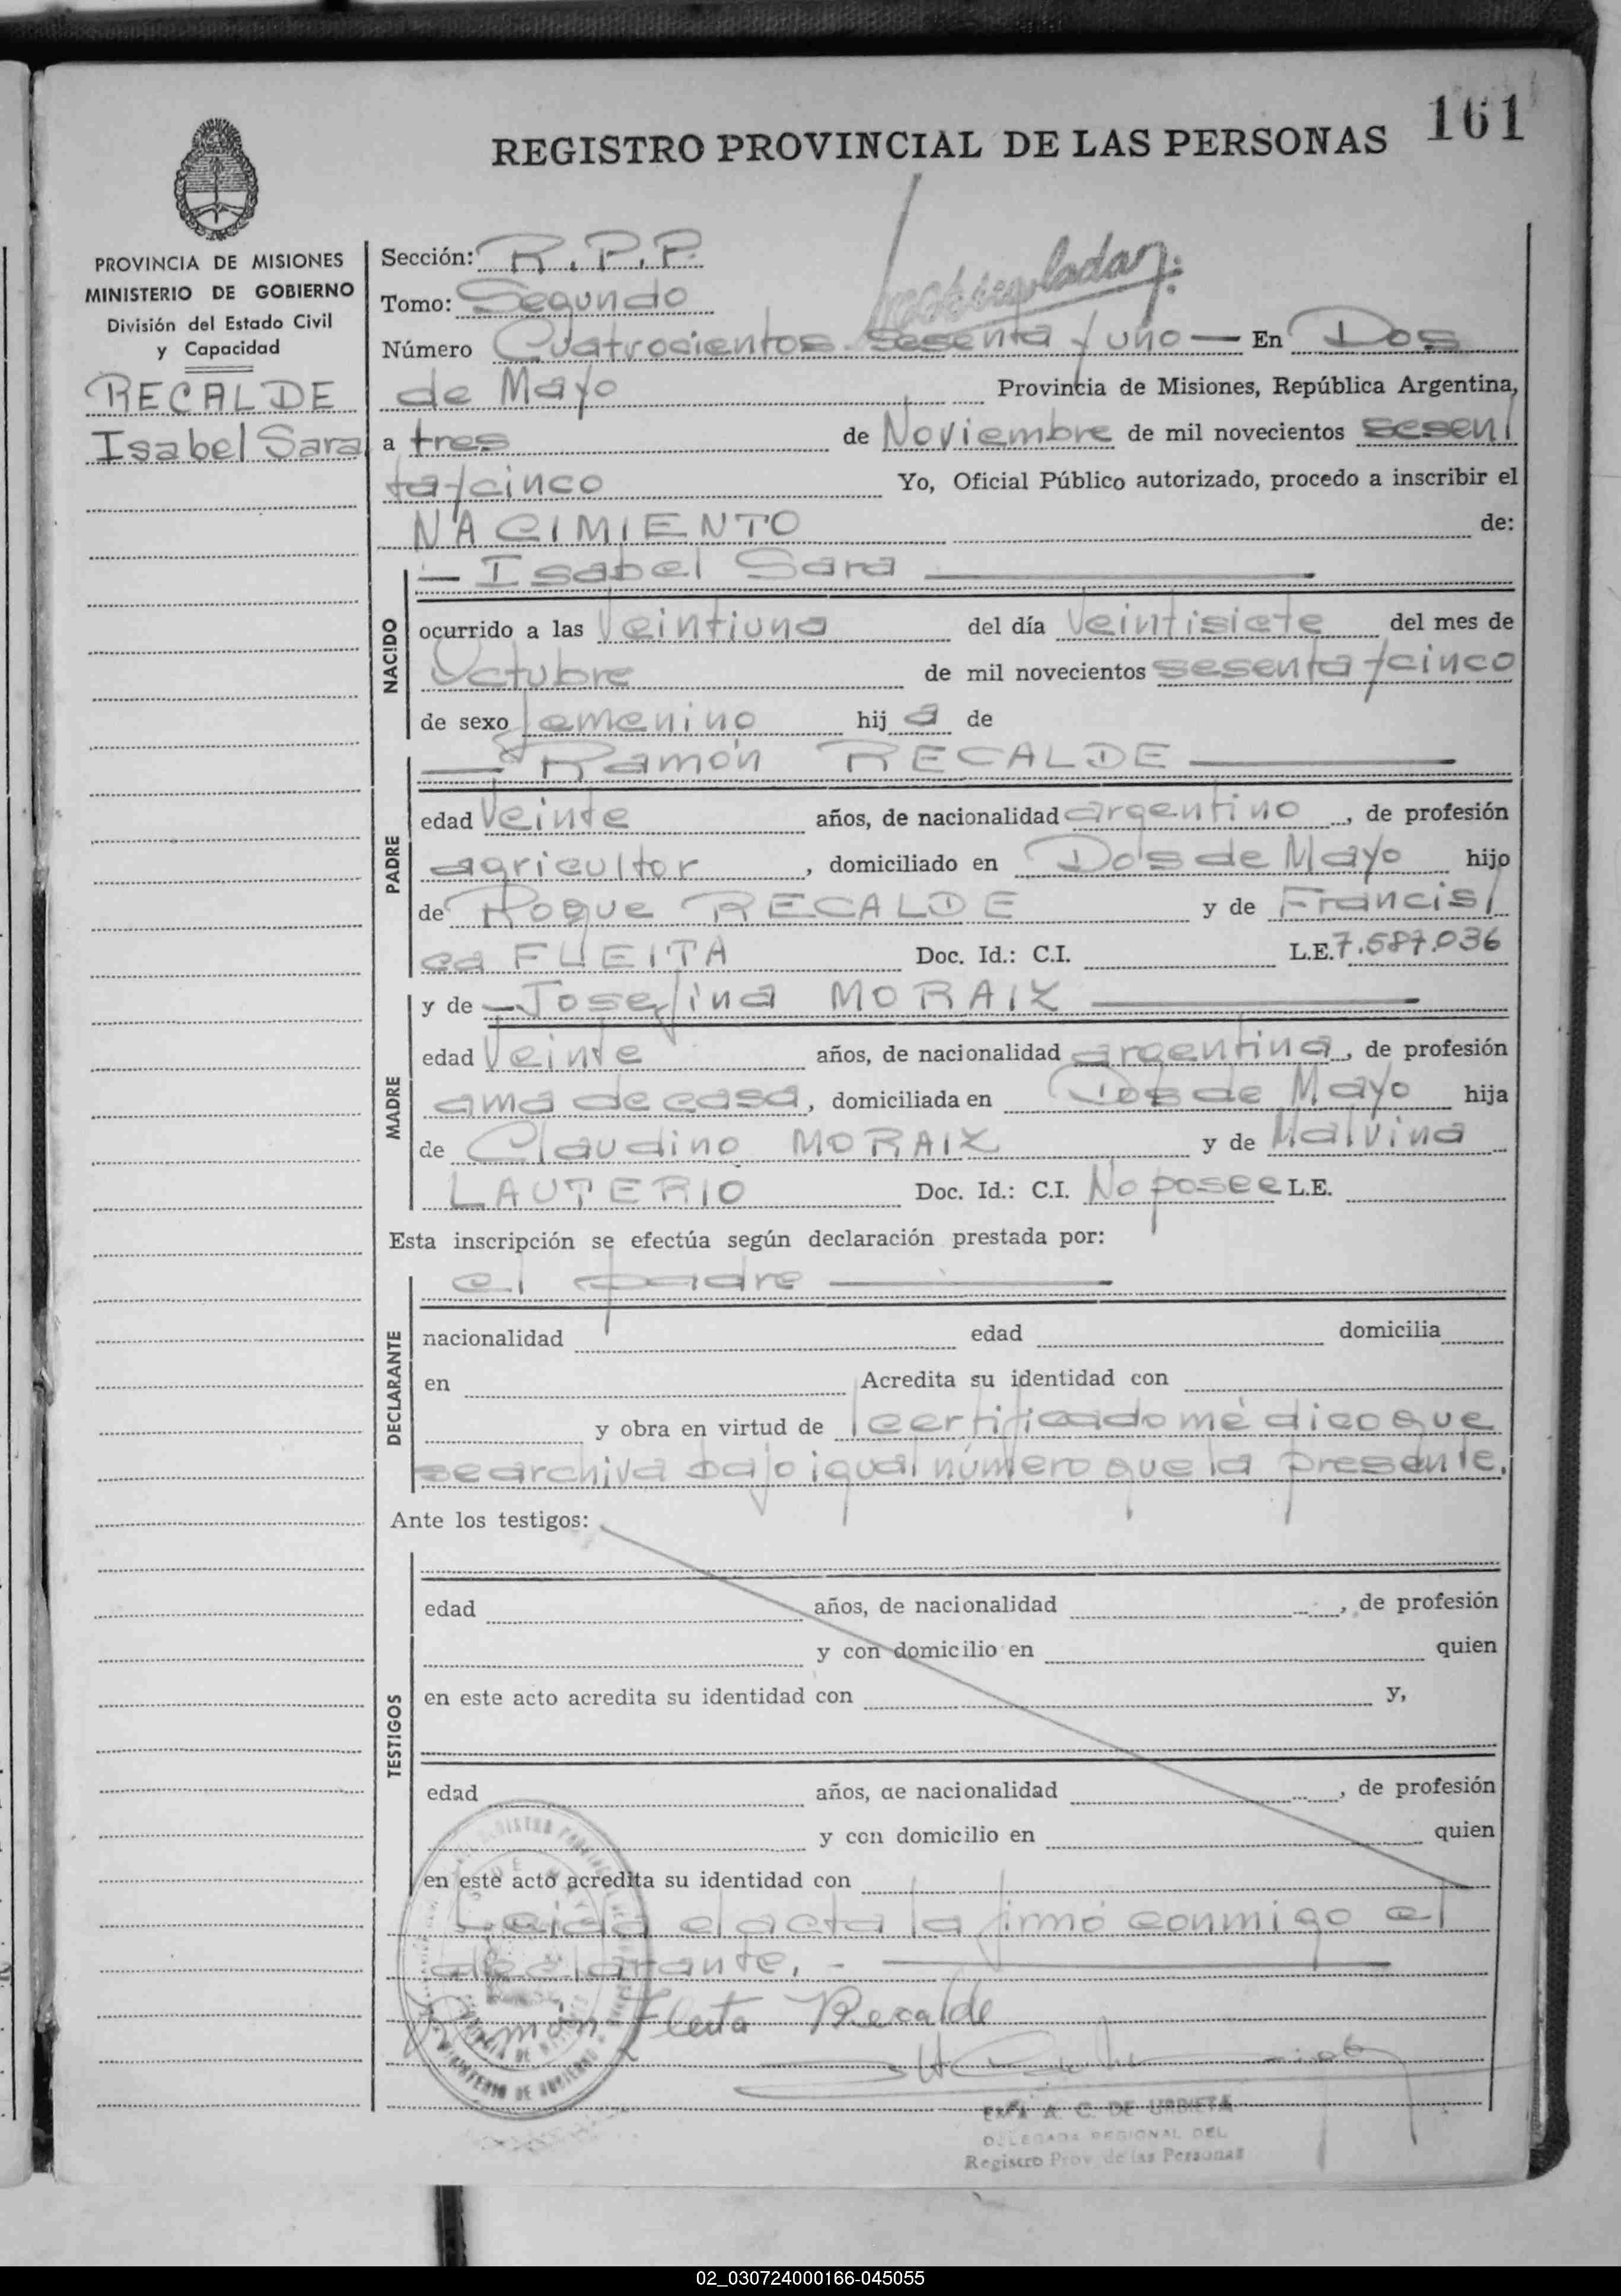 161
REGISTRO PROVINCIAL DE LAS PERSONAS
PROVINCIA DE MISIONES
MINISTERIO DE GOBIERNO
División del Estado Civil
y Capacidad
RECALDE
Isabel Sara
Sección: R.P.P.
Tomo: Segundo
Número Cuatrocientos sesenta y uno — En Dos
de Mayo Provincia de Misiones, República Argentina,
a tres de Noviembre de mil novecientos sesen/
ta y cinco Yo, Oficial Público autorizado, procedo a inscribir el
NACIMIENTO de:
NACIDO
— Isabel Sara —
ocurrido a las Veintiuna del día Veintisiete del mes de
Octubre de mil novecientos sesenta y cinco
de sexo femenino hij a de
PADRE
— Ramón RECALDE —
edad Veinte años, de nacionalidad argentino, de profesión
agricultor, domiciliado en Dos de Mayo hijo
de Roque RECALDE y de Francis/
ca FLEITA Doc. Id.: C.I. L.E. 7.587.036
MADRE
y de — Josefina MORAIZ —
edad Veinte años, de nacionalidad argentina, de profesión
ama de casa, domiciliada en Dos de Mayo hija
de Claudino MORAIZ y de Malvina
LAUTERIO Doc. Id.: C.I. No posee L.E.
Esta inscripción se efectúa según declaración prestada por:
DECLARANTE
el padre —
nacionalidad edad domicilia
en Acredita su identidad con
y obra en virtud de certificado médico que
se archiva bajo igual número que la presente.
Ante los testigos:
TESTIGOS
edad años, de nacionalidad , de profesión
y con domicilio en quien
en este acto acredita su identidad con y,
edad años, de nacionalidad , de profesión
y con domicilio en quien
en este acto acredita su identidad con
Leída el acta la firmó conmigo el
declarante. - —
Ramón Fleita Recalde
EMA A. C. DE URBIETA
DELEGADA REGIONAL DEL
Registro Prov. de las Personas
02_030724000166-045055